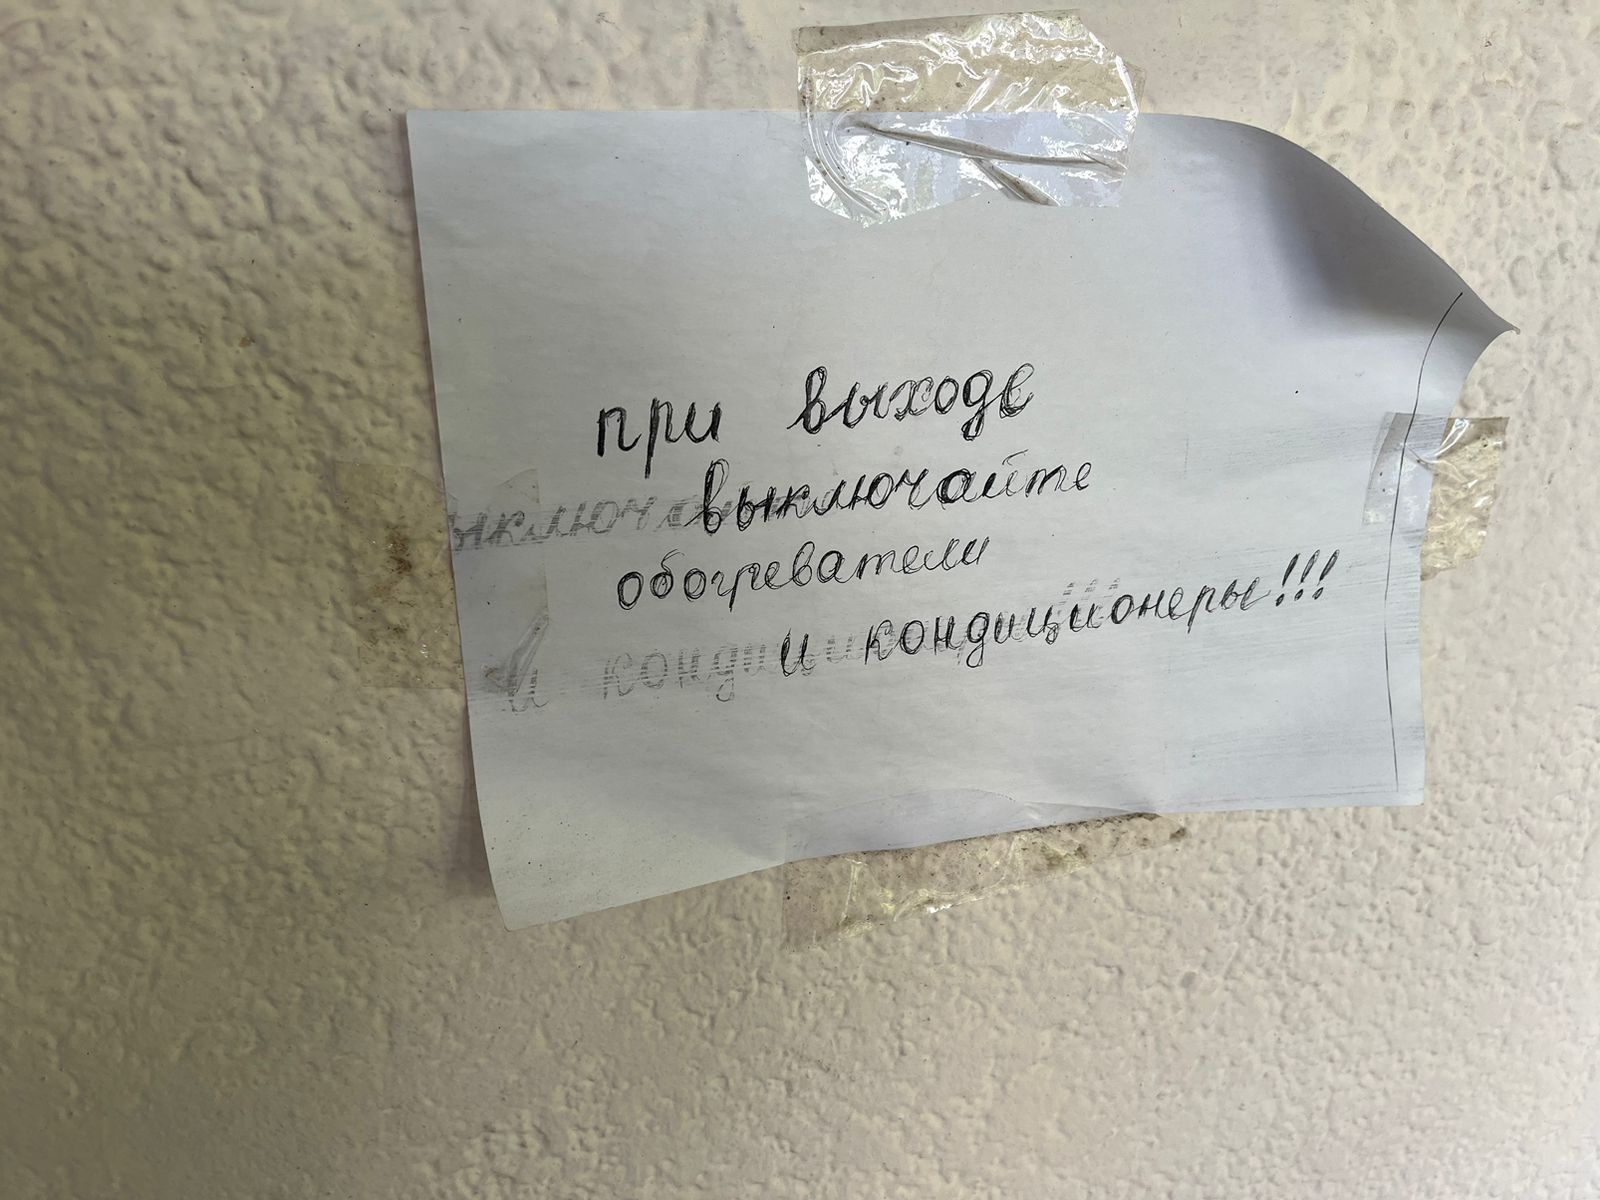 при выходе
выключайте
обогреватели
и кондиционеры!!!